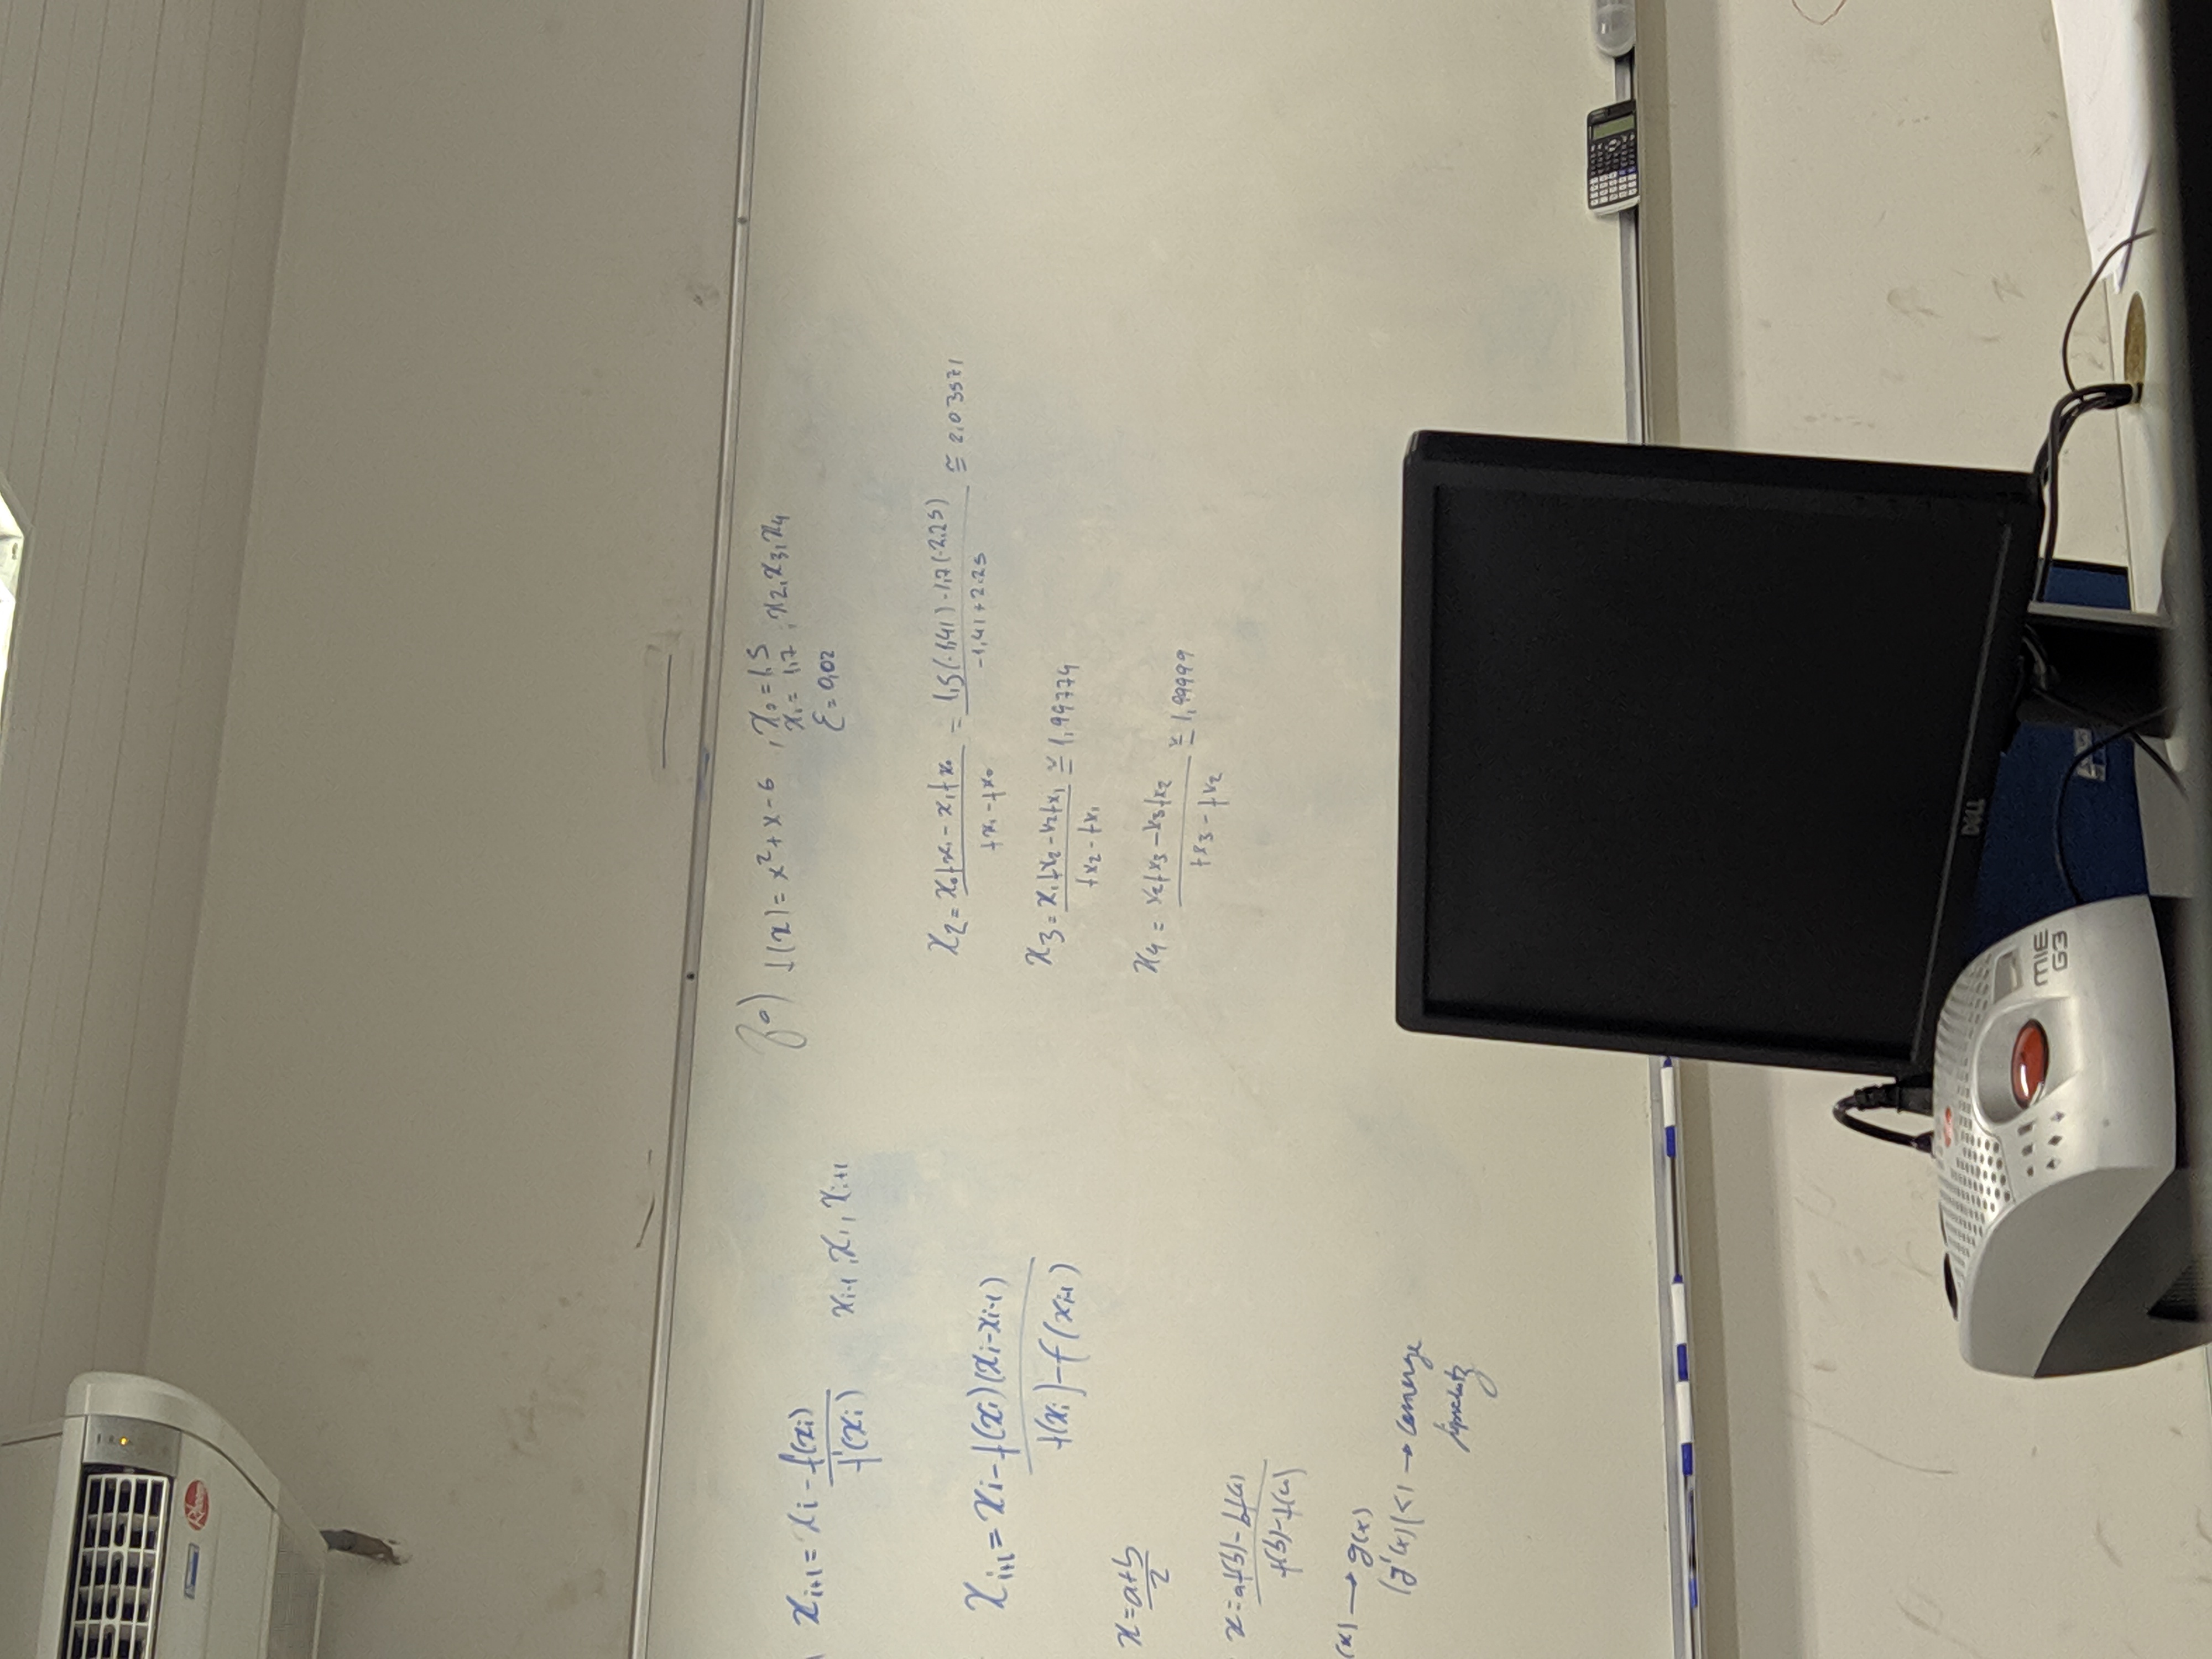 Rheem
x_{i+1} = x_i - f(x_i) / f'(x_i)
x_{i-1}, x_i, x_{i+1}
x_{i+1} = x_i - f(x_i)(x_i - x_{i-1}) / f(x_i) - f(x_{i-1})
x = a+b / 2
x = af(b) - bf(a) / f(b) - f(a)
(x) → g(x)
|g'(x)| < 1 → converge
a)
f(x) = x² + x - 6 , x₀ = 1,5
x₁ = 1,7 , x₂, x₃, x₄
ε = 0,02
x₂ = x₀fx₁ - x₁fx₀ / fx₁ - fx₀ = 1,5(-1,41) - 1,7(-2,25) / -1,41 + 2,25 ≅ 2,03571
x₃ = x₁fx₂ - x₂fx₁ / fx₂ - fx₁ ≅ 1,99774
x₄ = x₂fx₃ - x₃fx₂ / fx₃ - fx₂ ≅ 1,99999
DELL
MIE
G3